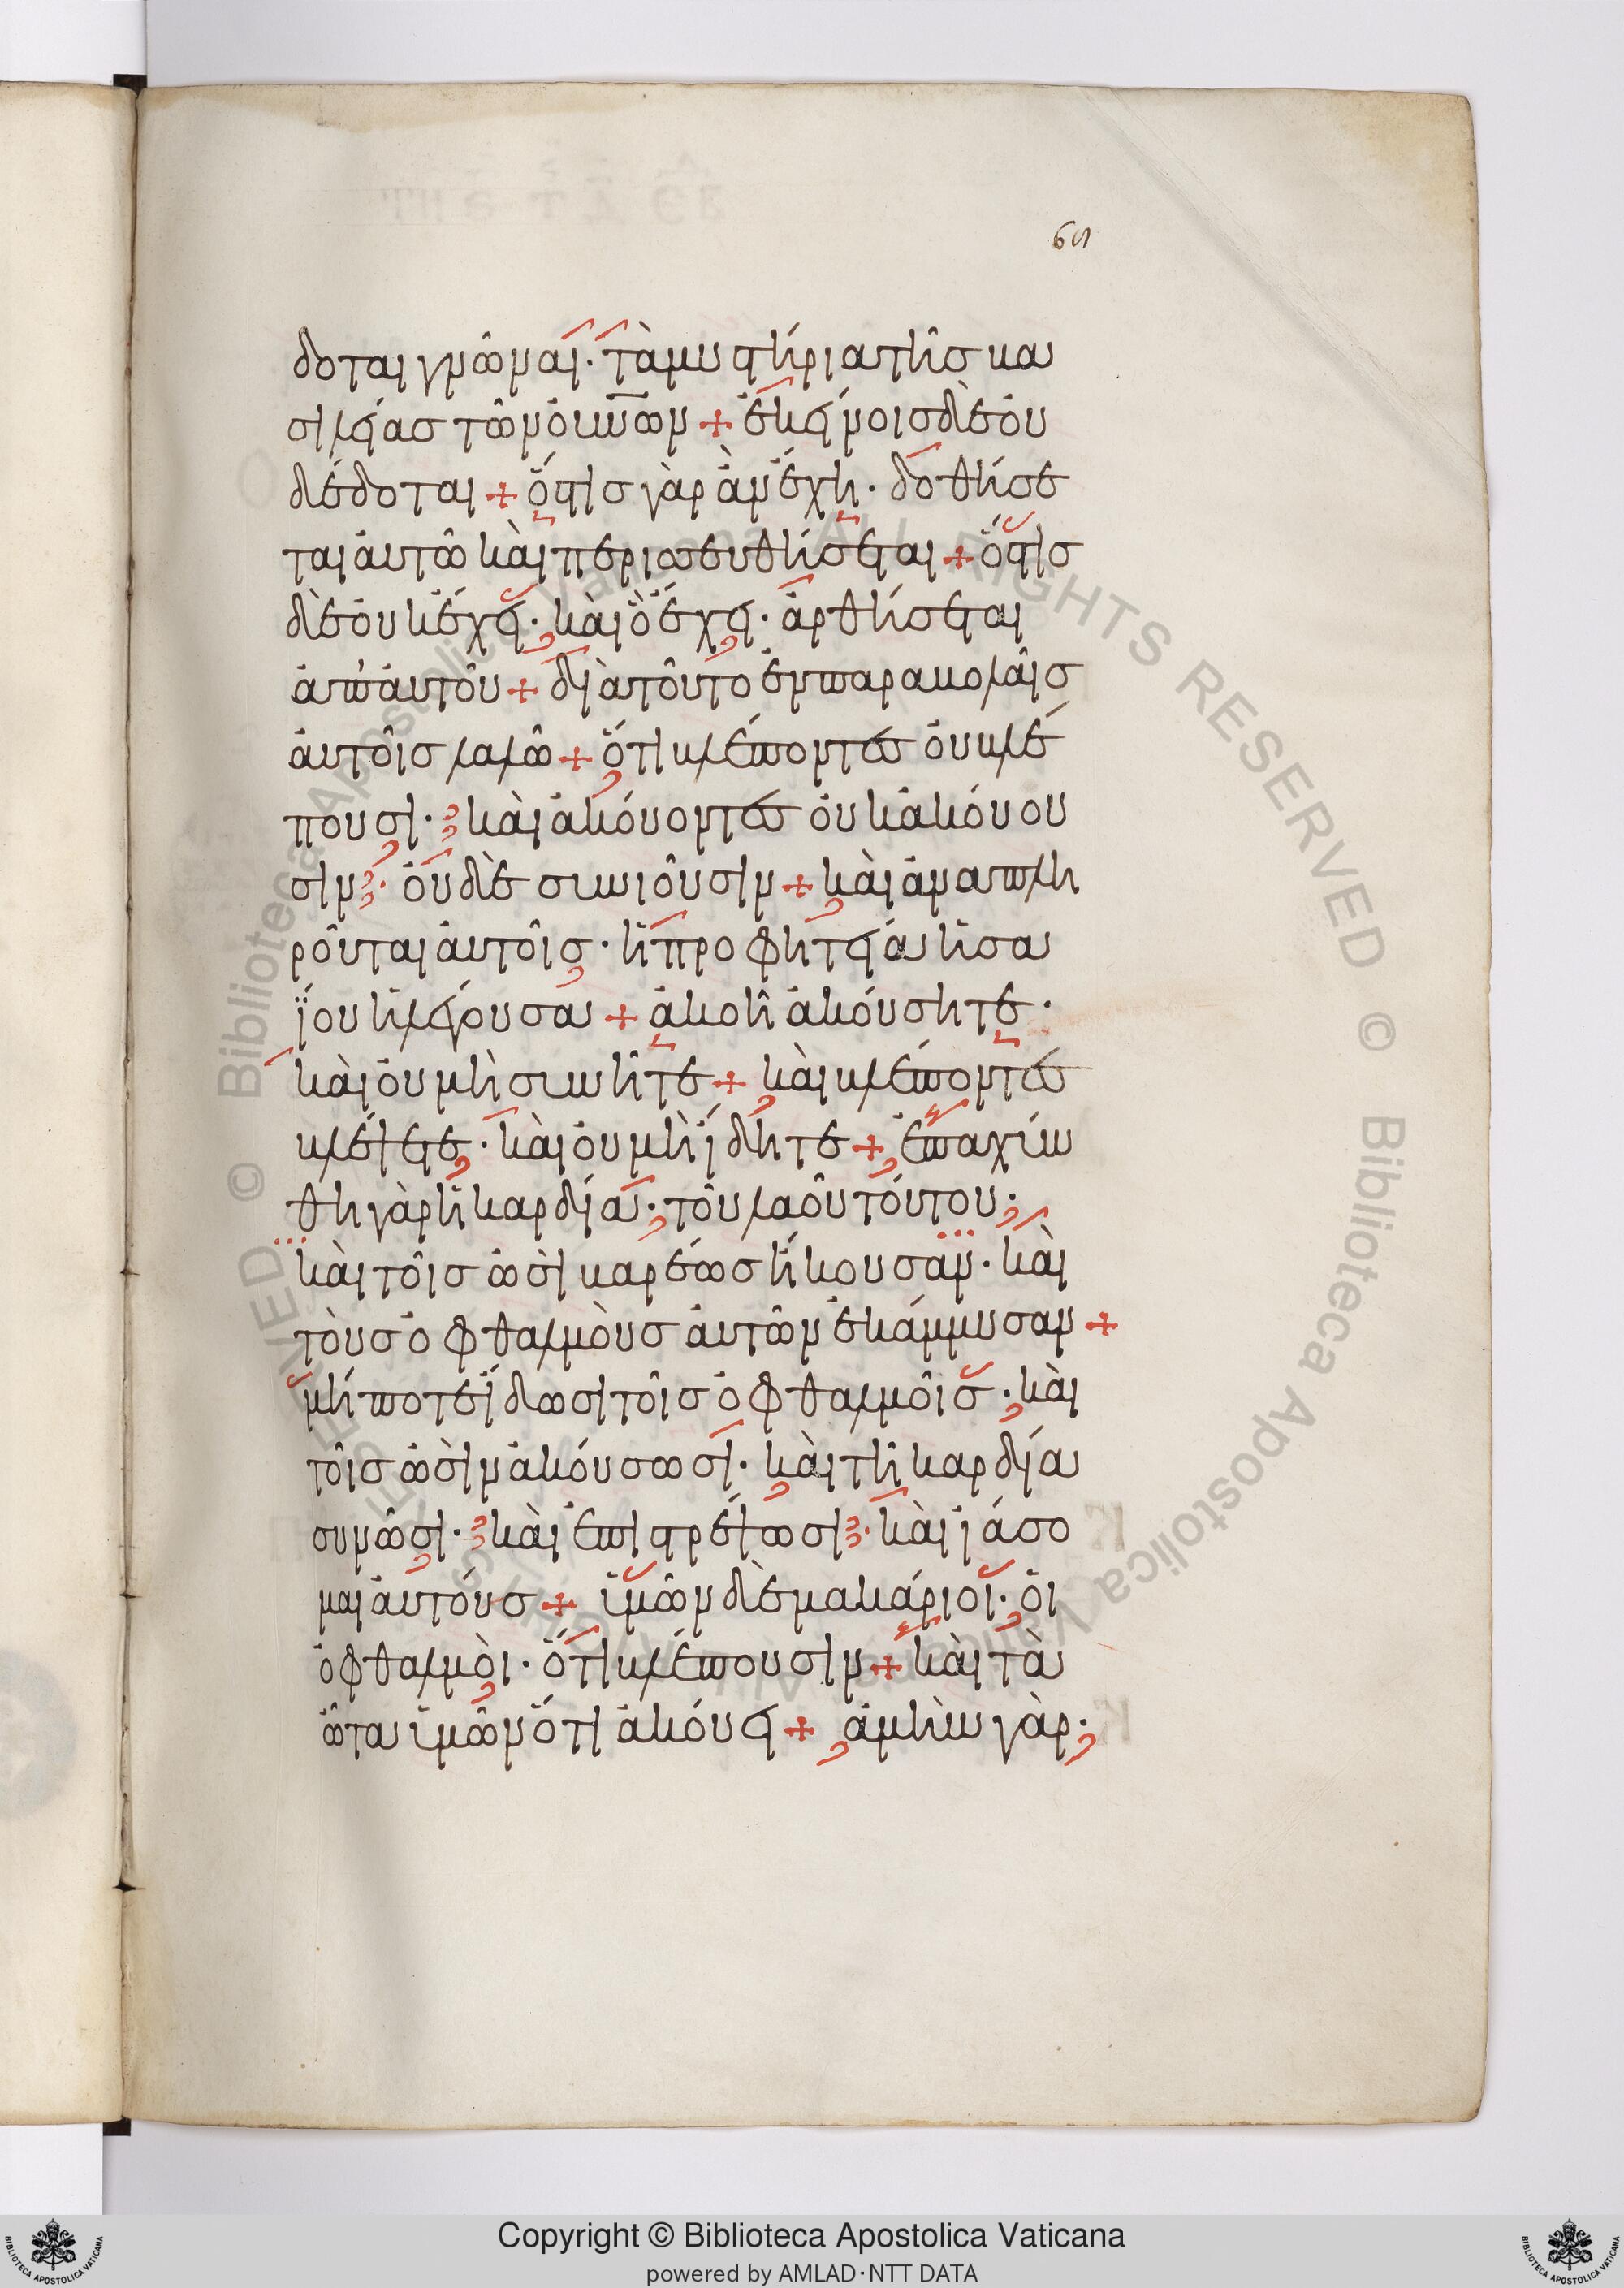 69
δοται γνῶναι· τὰ μυστήρια τῆς βα
σιλείας τῶν οὐνῶν + ἐκείνοις δὲ οὐ
δέδοται + ὅστις γὰρ ἂν ἔχῃ· δοθήσε
ται αὐτῶ καὶ περισσευθήσεται + ὅστις
δὲ οὐκ ἔχει· καὶ ὃ ἔχει· ἀρθήσεται
ἀπ' αὐτοῦ + διὰ τοῦτο ἐν παραβολαῖς
αὐτοῖς λαλῶ + ὅτι βλέποντες οὐ βλέ
πουσι· καὶ ἀκούοντες οὐκ ἀκούου
σιν· οὐδὲ συνιοῦσιν + καὶ ἀναπλη
ροῦται αὐτοῖς· ἡ προφητεία ἡσα
ΐου ἡ λέγουσα + ἀκοῆ ἀκούσητε·
καὶ οὐ μὴ συνῆτε + καὶ βλέποντες
βλέψετε· καὶ οὐ μὴ ἴδητε + ἐπαχύν
θη γὰρ ἡ καρδία· τοῦ λαοῦ τούτου·
καὶ τοῖς ὠσὶ βαρέως ἤκουσαν· καὶ
τοὺς ὀφθαλμοὺς αὐτῶν ἐκάμμυσαν +
μήποτε ἴδωσι τοῖς ὀφθαλμοῖς· καὶ
τοῖς ὠσὶν ἀκούσωσι· καὶ τῆ καρδία
συνῶσι· καὶ ἐπιστρέψωσι· καὶ ἰάσο
μαι αὐτούς + ὑμῶν δὲ μακάριοι· οἱ
ὀφθαλμοὶ· ὅτι βλέπουσιν + καὶ τὰ
ὦτα ὑμῶν ὅτι ἀκούει + ἀμὴν γὰρ·
Copyright © Biblioteca Apostolica Vaticana
powered by AMLAD·NTT DATA